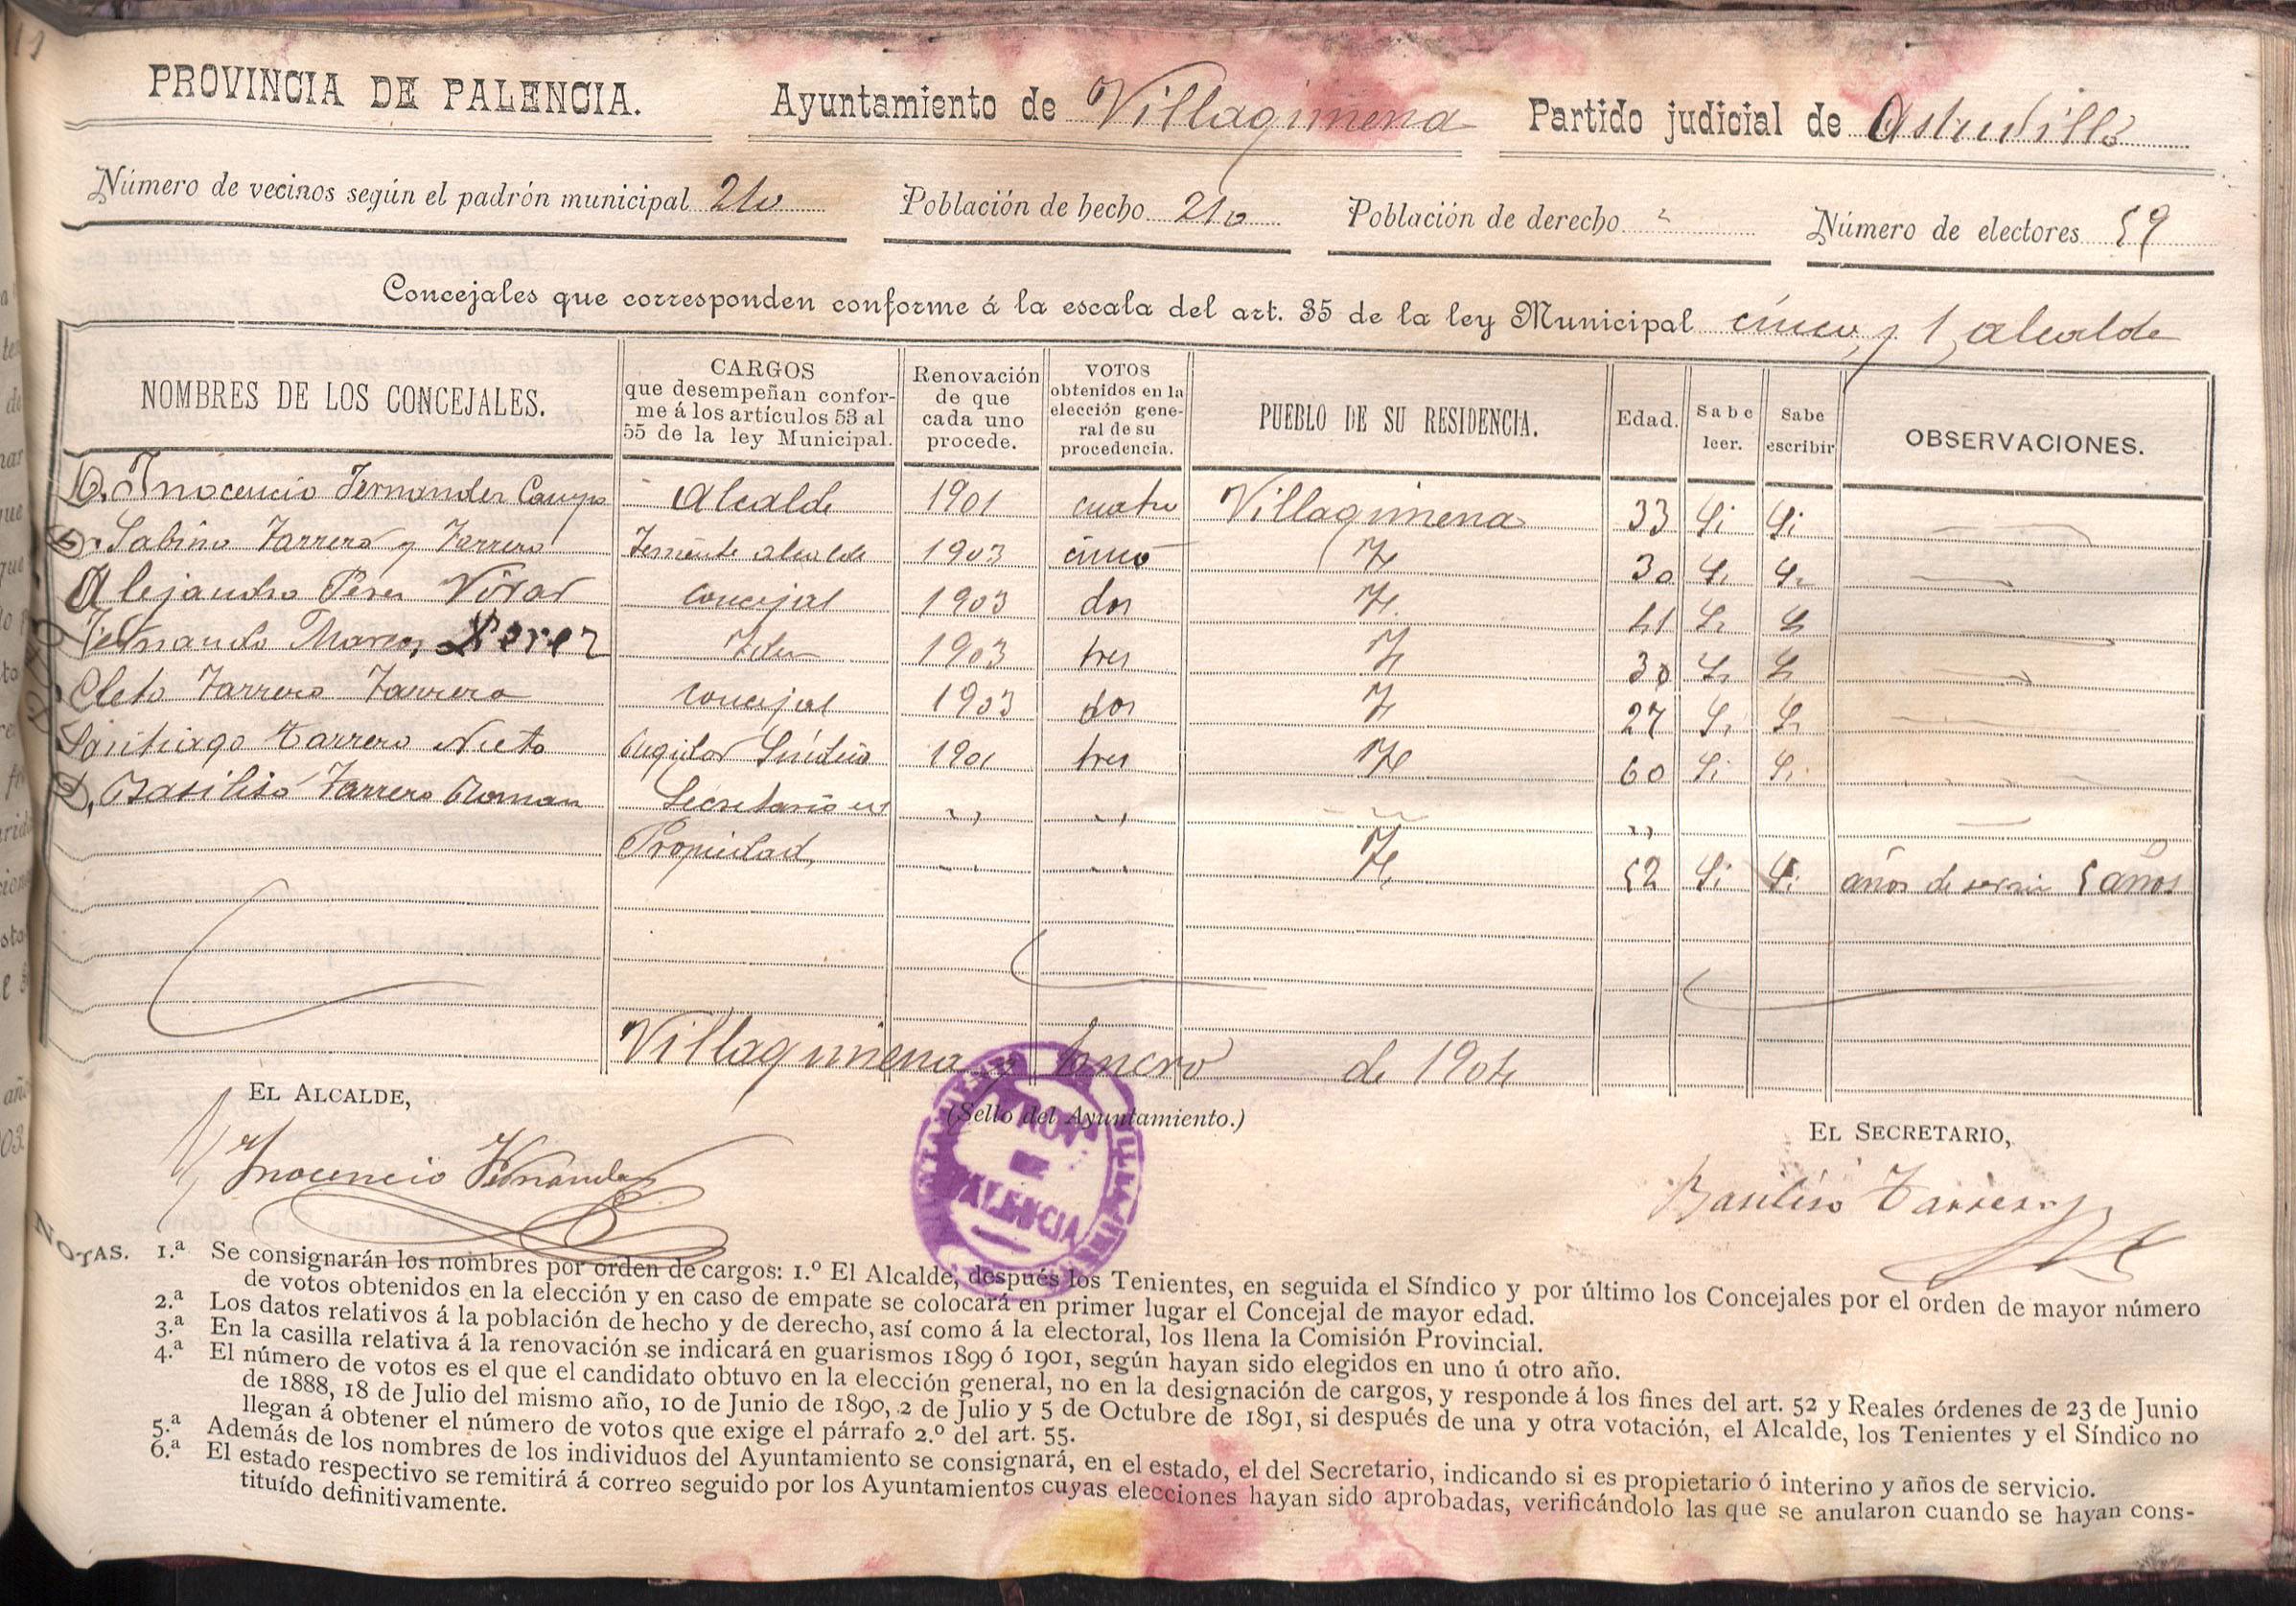 PROVINCIA DE PALENCIA. Ayuntamiento de Villagimena Partido judicial de Astudillo
Número de vecinos según el padrón municipal 210 Población de hecho 210 Población de derecho " Número de electores 59
Concejales que corresponden conforme á la escala del art. 35 de la ley Municipal cinco y 1 alcalde
NOMBRES DE LOS CONCEJALES. CARGOS que desempeñan conforme á los artículos 53 al 55 de la ley Municipal. Renovación de que cada uno procede. VOTOS obtenidos en la elección general de su procedencia. PUEBLO DE SU RESIDENCIA. Edad. Sabe leer. Sabe escribir OBSERVACIONES.
D. Inocencio Fernandez Campo Alcalde 1901 cuatro Villagimena 33 Si Si
D. Sabino Tarrero y Tarrero Teniente alcalde 1903 cinco Id 30 Si Si
Alejandro Perez Vivar concejal 1903 dos Id. 41 Si Si
Fernando Marcos Perez Idem 1903 tres Id 30 Si Si
Cleto Tarrero Tarrero concejal 1903 dos Id 27 Si Si
Santiago Tarrero Nieto Regidor Sindico 1901 tres Id 60 Si Si
D. Basiliso Tarrero Roman Secretario en " " "
Propiedad, " " Id. 52 Si Si años de servicio 5 años
Villagimena y Enero de 1904
EL ALCALDE, (Sello del Ayuntamiento.) EL SECRETARIO,
Inocencio Fernandez
PROV.
DE
PALENCIA
Basiliso Tarrero
NOTAS. 1.ª Se consignarán los nombres por orden de cargos: 1.º El Alcalde, después los Tenientes, en seguida el Síndico y por último los Concejales por el orden de mayor número
de votos obtenidos en la elección y en caso de empate se colocará en primer lugar el Concejal de mayor edad.
2.ª Los datos relativos á la población de hecho y de derecho, así como á la electoral, los llena la Comisión Provincial.
3.ª En la casilla relativa á la renovación se indicará en guarismos 1899 ó 1901, según hayan sido elegidos en uno ú otro año.
4.ª El número de votos es el que el candidato obtuvo en la elección general, no en la designación de cargos, y responde á los fines del art. 52 y Reales órdenes de 23 de Junio
de 1888, 18 de Julio del mismo año, 10 de Junio de 1890, 2 de Julio y 5 de Octubre de 1891, si después de una y otra votación, el Alcalde, los Tenientes y el Síndico no
llegan á obtener el número de votos que exige el párrafo 2.º del art. 55.
5.ª Además de los nombres de los individuos del Ayuntamiento se consignará, en el estado, el del Secretario, indicando si es propietario ó interino y años de servicio.
6.ª El estado respectivo se remitirá á correo seguido por los Ayuntamientos cuyas elecciones hayan sido aprobadas, verificándolo las que se anularon cuando se hayan cons-
tituído definitivamente.